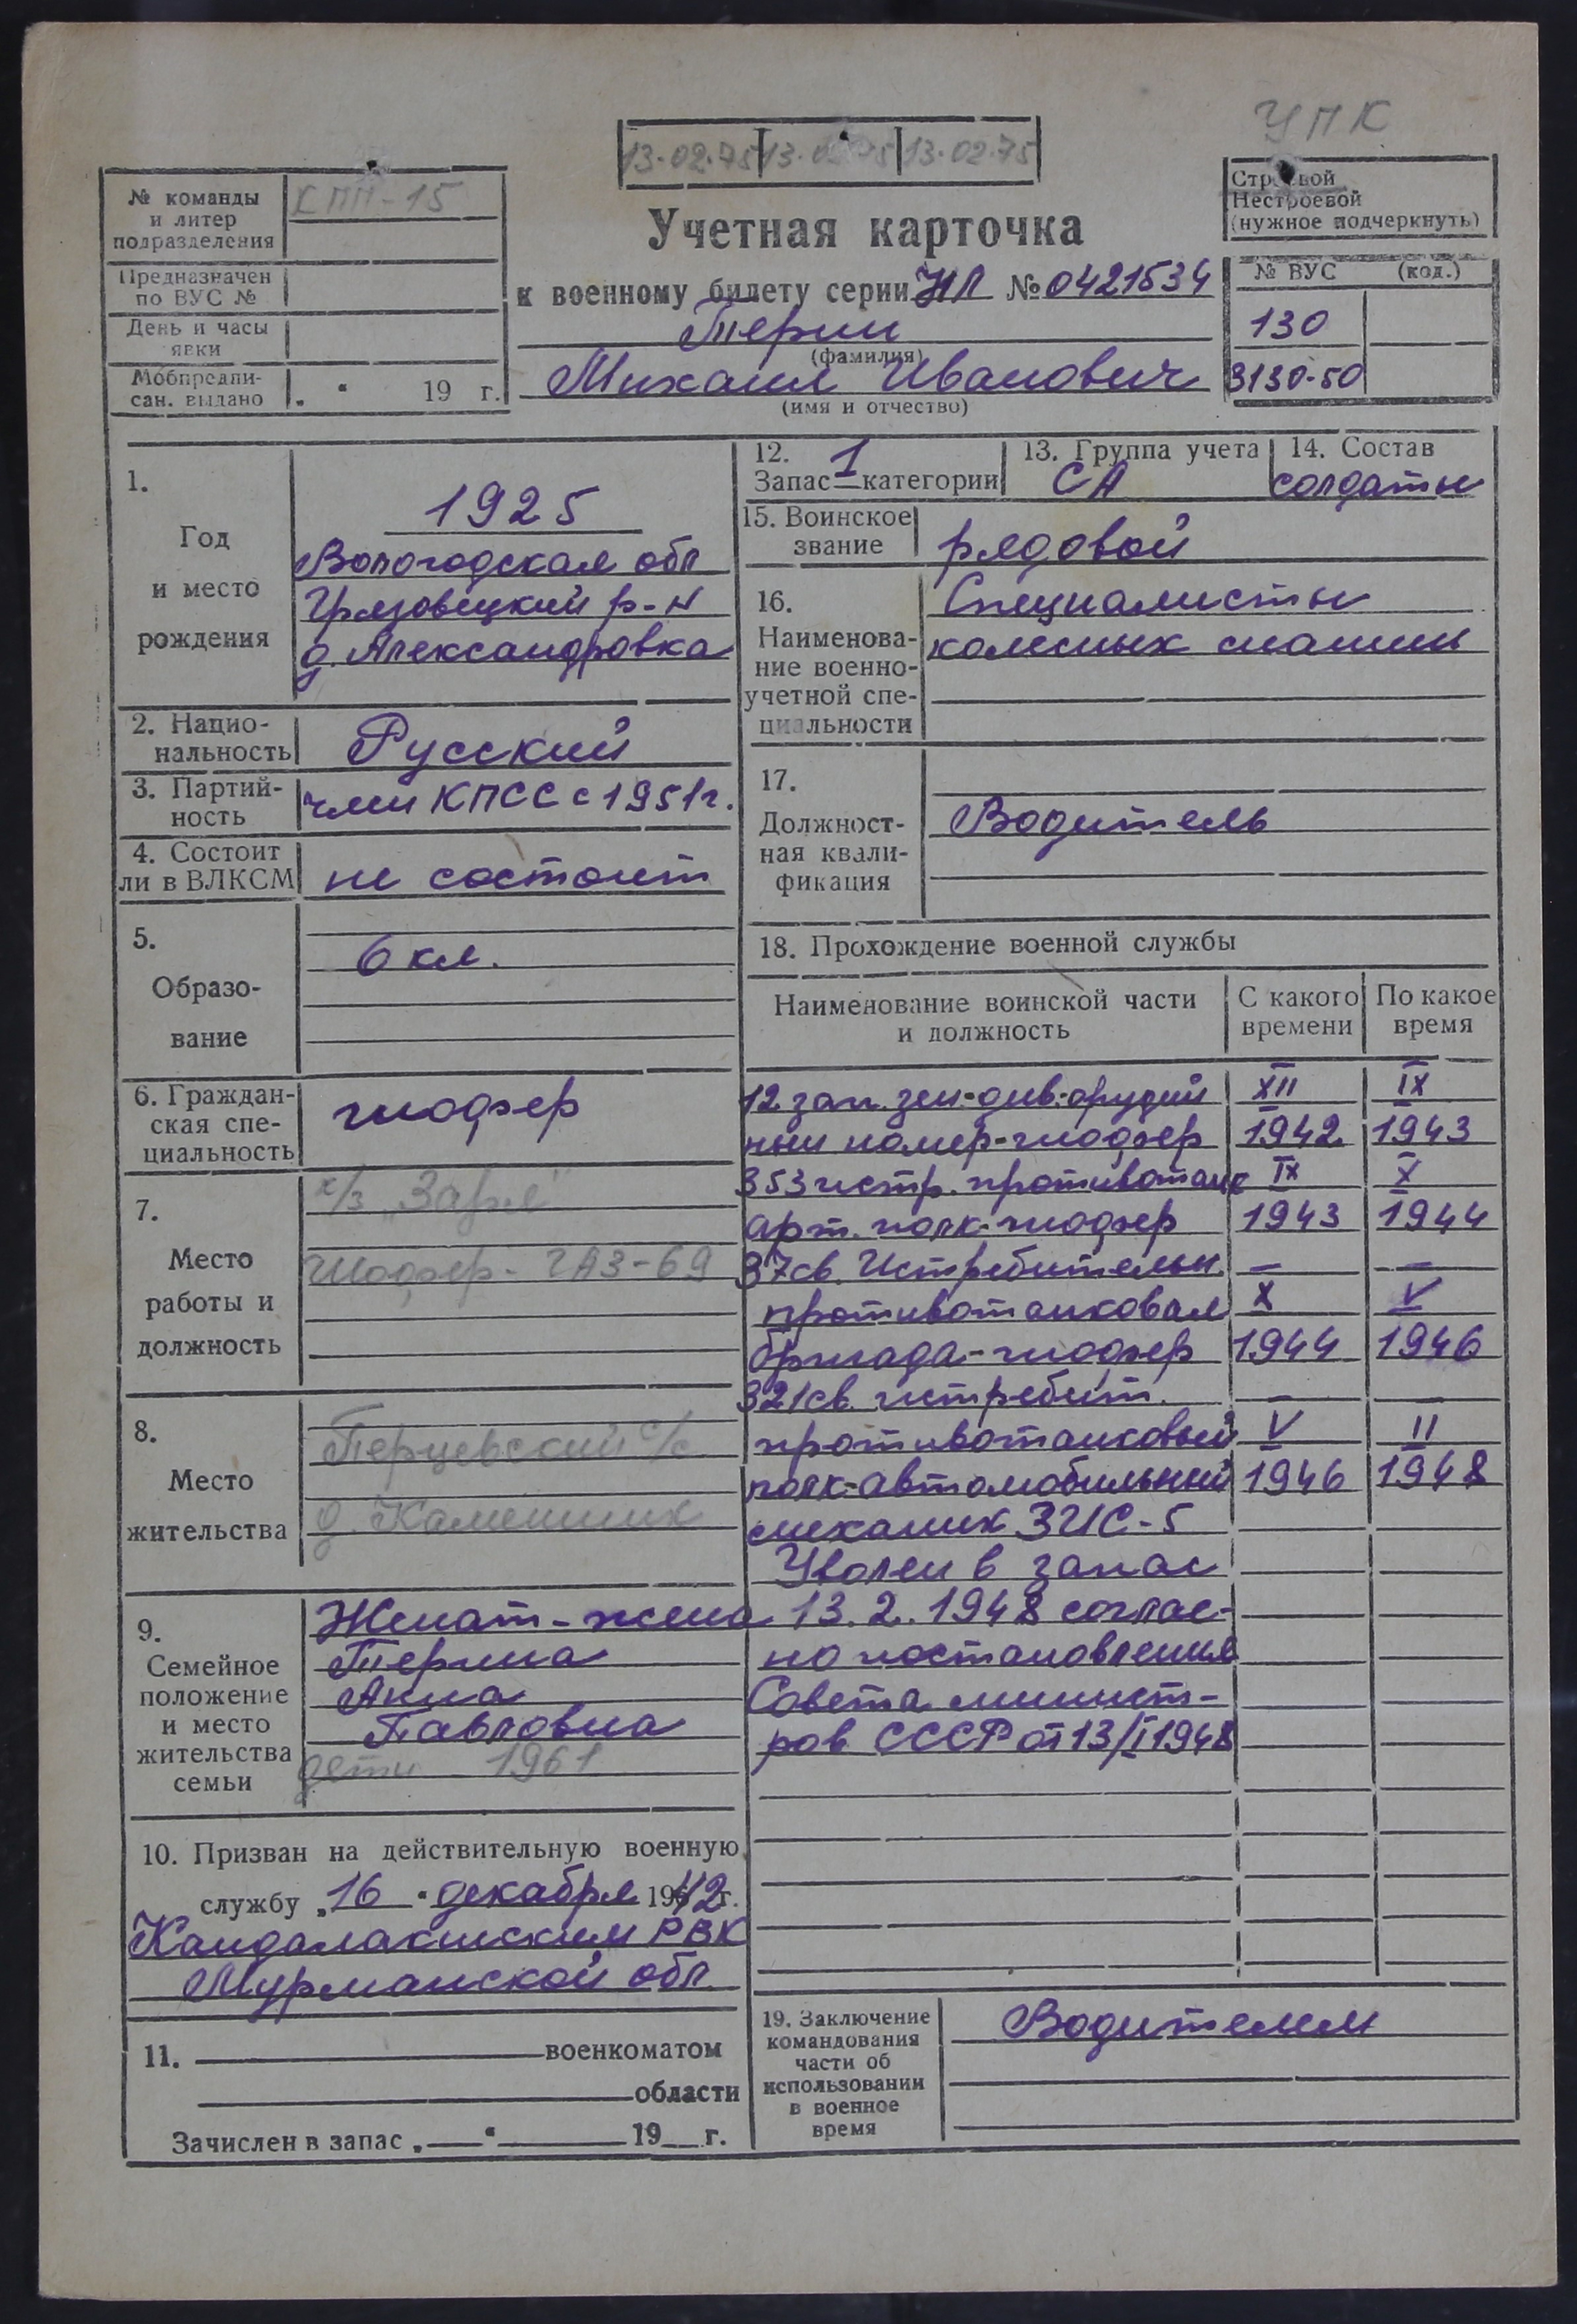 УПК
13-02-75 13-02-75 13-02-75
№ команды и литер подразделения
КПП-15
Предназначен по ВУС №
День и часы явки
Мобпредписан. выдано „ " 19 г.
Строевой
Нестроевой
(нужное подчеркнуть)
Учетная карточка
к военному билету серии НЛ № 0421534
Терин
(фамилия)
Михаил Иванович
(имя и отчество)
№ ВУС (код.)
130
3130-50
1.
Год
и место
рождения
1925
Вологодская обл
Грязовецкий р-н
д. Александровка
2. Нацио-
нальность
Русский
3. Партий-
ность
член КПСС с 1951 г.
4. Состоит
ли в ВЛКСМ
не состоит
5.
Образо-
вание
6 кл.
6. Граждан-
ская спе-
циальность
шофер
7.
Место
работы и
должность
к/з „Заря"
Шофер - ГАЗ-69
8.
Место
жительства
Перцевский с/с
д. Каменник
9.
Семейное
положение
и место
жительства
семьи
Женат - жена
Терина
Анна
Павловна
дети 1961
10. Призван на действительную военную
службу „16 " декабря 1942 г.
Кандалакшским РВК
Мурманской обл.
11. военкоматом
области
Зачислен в запас „ " 19 г.
12.
Запас 1 категории
13. Группа учета
СА
14. Состав
солдаты
15. Воинское
звание
рядовой
16.
Наименова-
ние военно-
учетной спе-
циальности
Специалисты
колесных машин
17.
Должност-
ная квали-
фикация
Водитель
18. Прохождение военной службы
Наименование воинской части
и должность
С какого
времени
По какое
время
12 зап. зен. див. орудий XII IX
ный номер-шофер 1942 1943
353 истр. противотанк IX X
арт. полк-шофер 1943 1944
37св. Истребительн. — —
противотанковая X V
бригада-шофер 1944 1946
321св. истребит. — —
противотанковый V II
полк-автомобильный 1946 1948
механик ЗИС-5
Уволен в запас
13.2.1948 соглас-
но постановления
Совета минист-
ров СССР от 13/I 1948
19. Заключение
командования
части об
использовании
в военное
время
Водителем